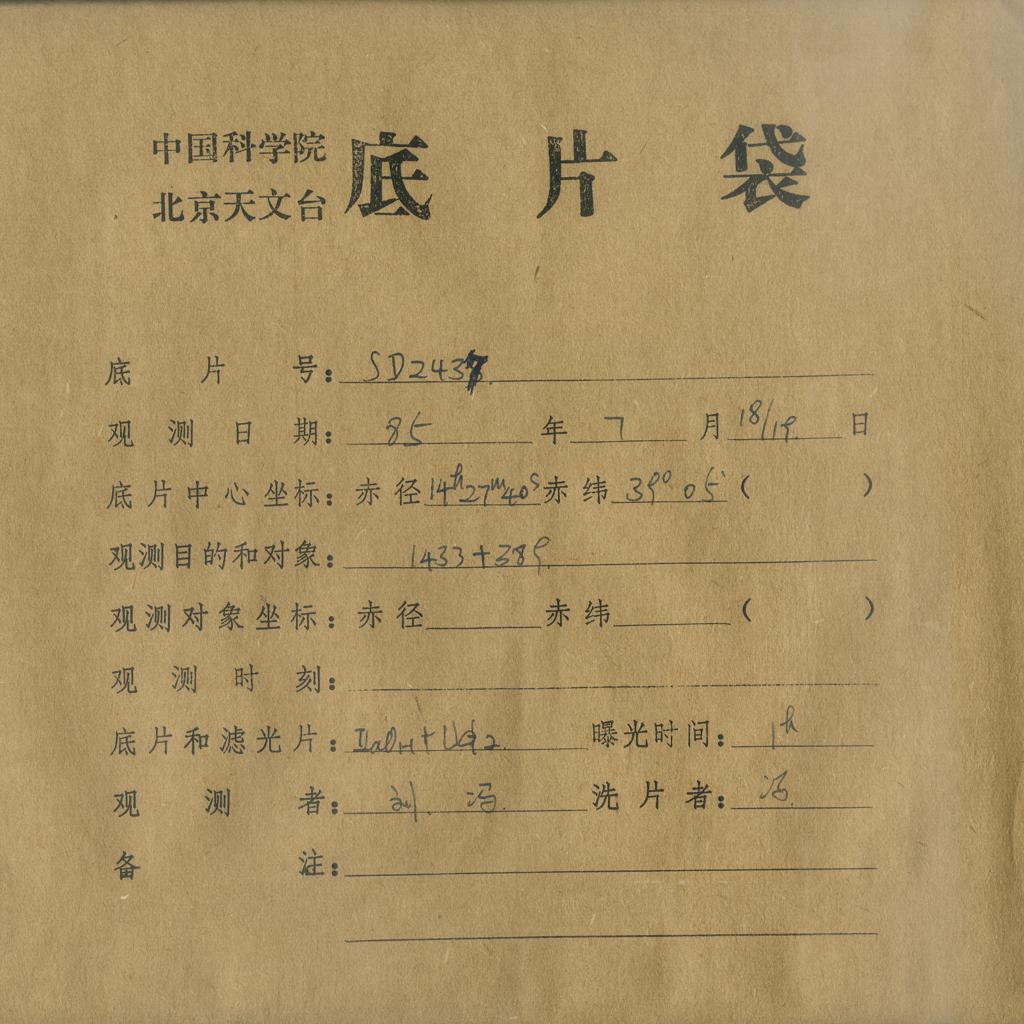 中国科学院
北京天文台
底片袋
底片号：SD2437
观测日期：85年7月18/19日
底片中心坐标：赤径14h27m40s赤纬39°05′（ ）
观测目的和对象：1433+389
观测对象坐标：赤径 赤纬 （ ）
观测时刻：
底片和滤光片：IIaOH+UG2 曝光时间：1h
观测者：刘 冯 洗片者：冯
备注：